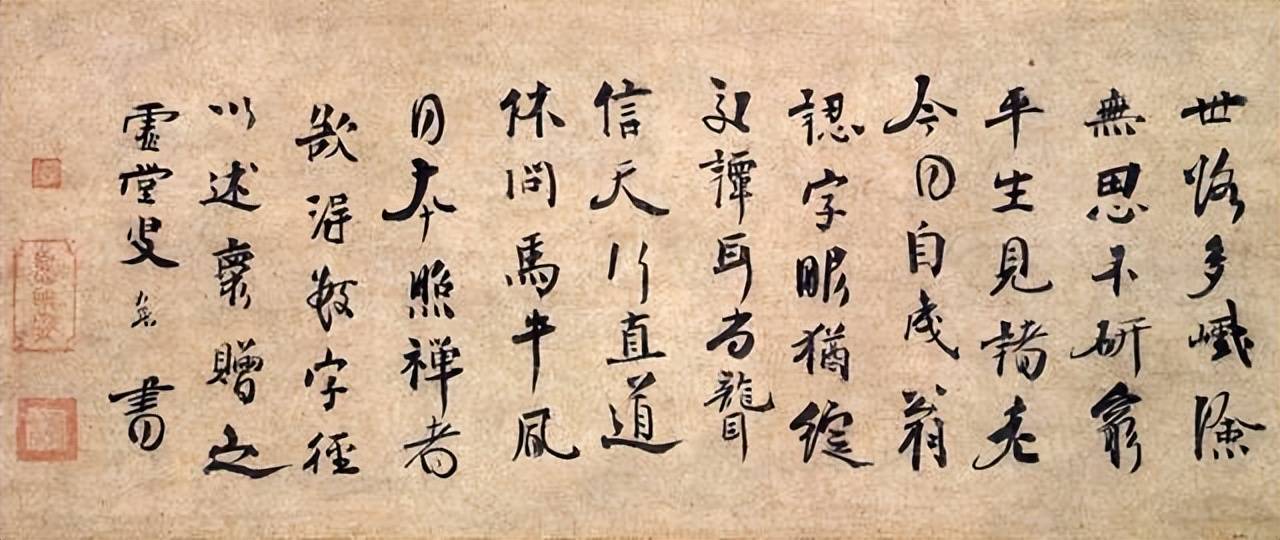 世路多巇險
無思不研窮
平生見諸老
今日自成翁
認字眼猶綻
交譚耳尚聾
信天行直道
休問馬牛風
日本照禅者
欲得數字徑
以述褱贈之
虛堂叟書